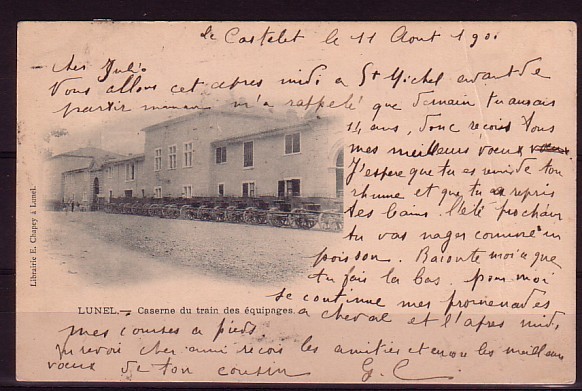 le Castelet le 11 Aout 1901
cher Jules
Vous allons cet apres midi a St Michel avant de
partir maman m'a rappelé que demain tu auras
14 ans, donc recois tous
mes meilleurs voeux
J'espere que tu es remis de ton
rhume et que tu a repris
tes bains. l'été prochain
tu vas nager comme un
poisson. Raconte moi a que
tu fais la bas, pour moi
je continue mes promenades
a cheval et l'apres midi
mes courses a pied.
Au revoir cher ami recois les amities et encore les meilleurs
voeux de ton cousin G. C.
LUNEL. — Caserne du train des équipages.
Librairie E. Chapey à Lunel.